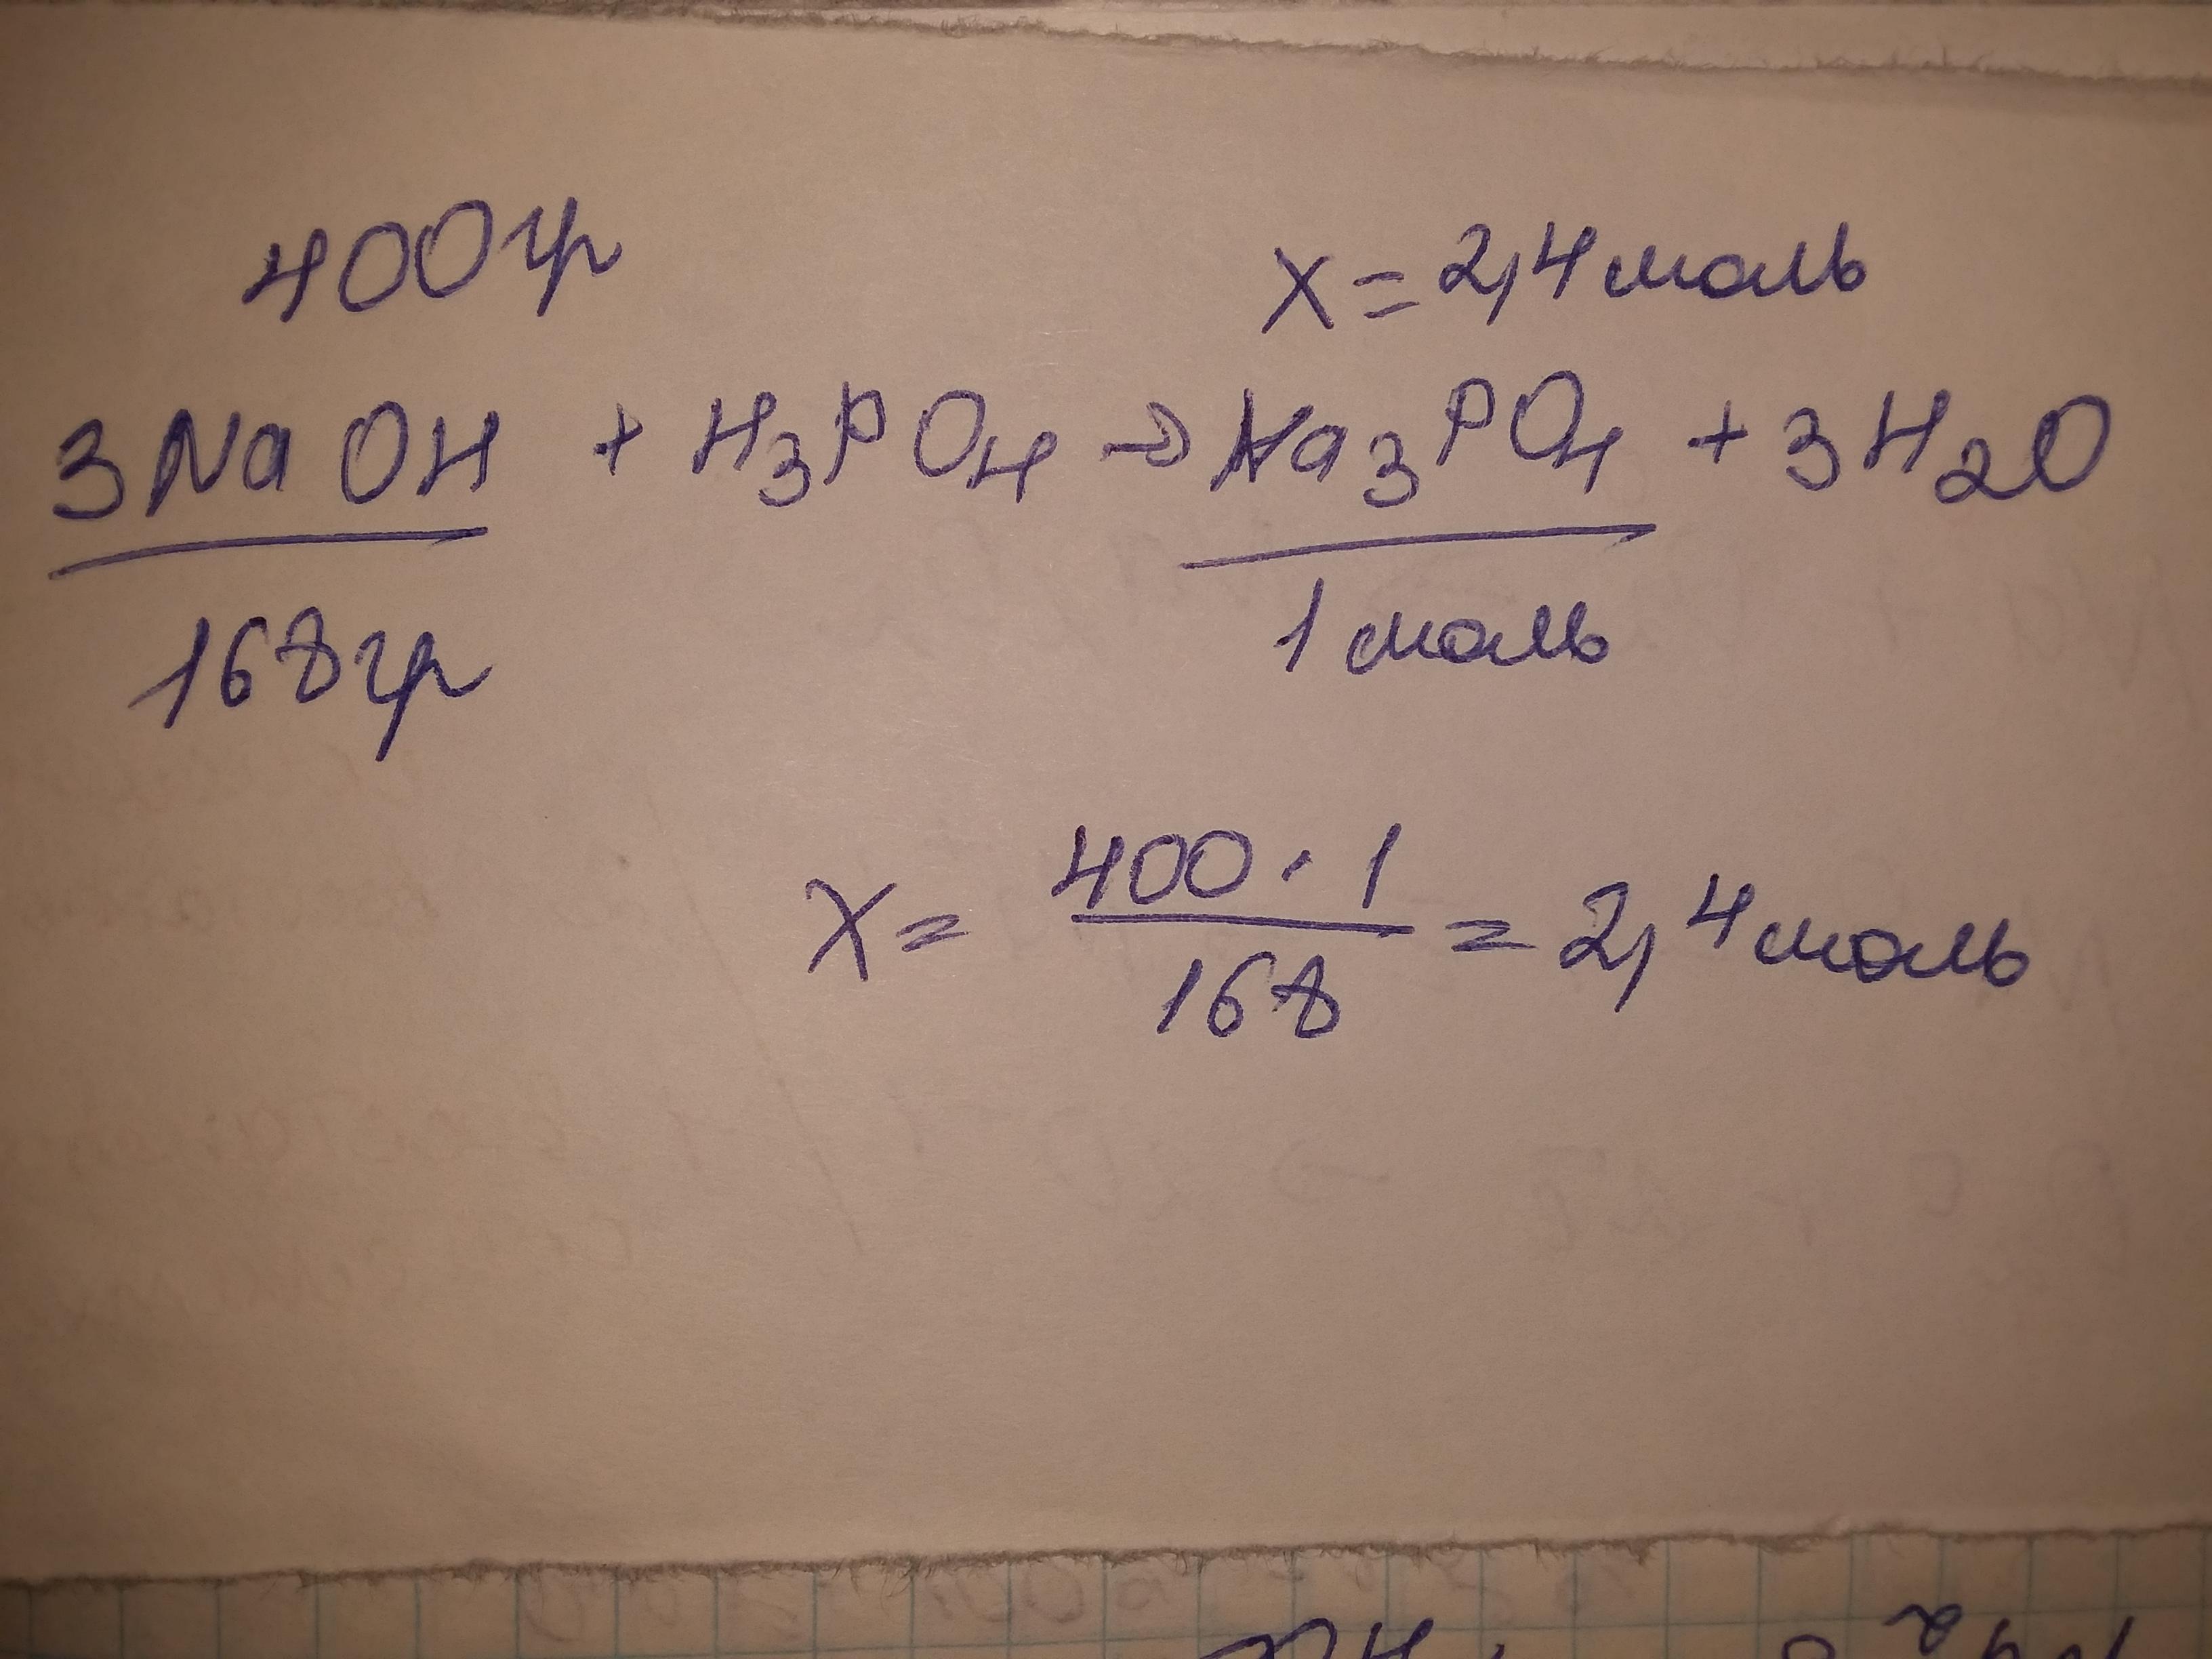 400гр
x = 2,4 моль
3NaOH + H₃PO₄ → Na₃PO₄ + 3H₂O
168гр
1 моль
x = 400 · 1 / 168 = 2,4 моль